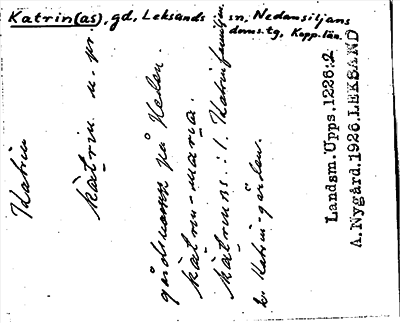 Katrin(as), gd, Leksands sn, Nedansiljans
doms.tg, Kopp. län.
Katrin
kàtrin u. pr.
gårdnamn på Heden.
kàtrin-maria.
kàtrinns: 1. Katrinfamiljen
2. Katrin-gården.
Landsm. Upps. 1226:2
A. Nygård. 1926. LEKSAND